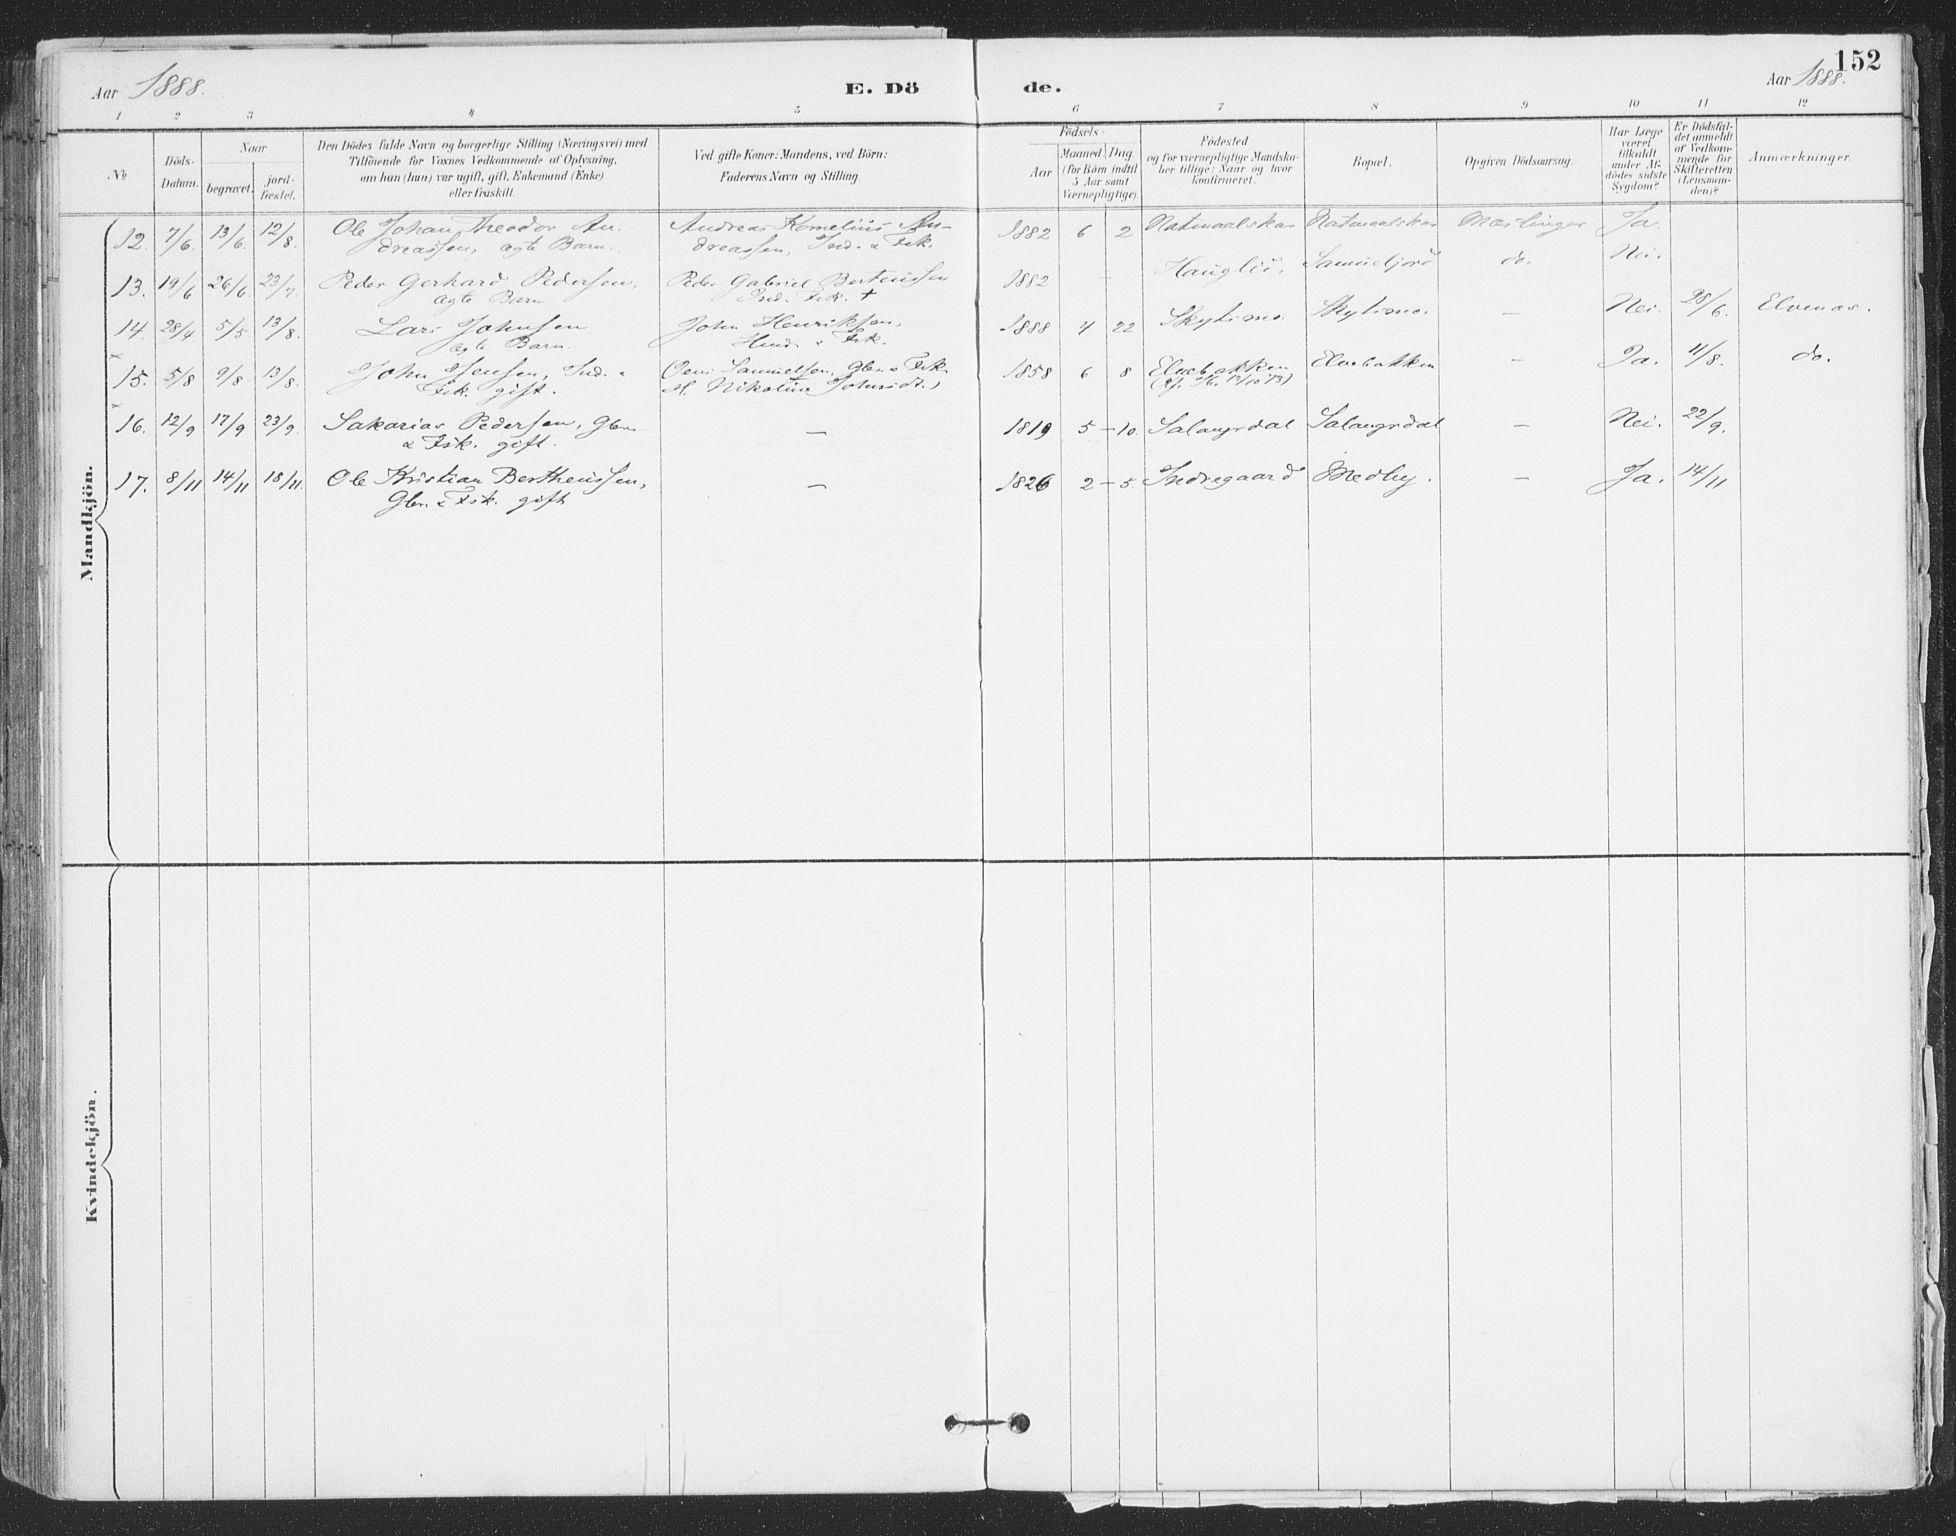 152
Aar 1888.
E. Dö de.
Aar 1888.
1 2 3 4 5 6 7 8 9 10 11 12
No
Döds-
Datum.
Naar
begravet.
jord-
fæstet.
Den Dödes fulde Navn og borgerlige Stilling (Næringsvei) med
Tilföiende for Voxnes Vedkommende af Oplysning,
om han (hun) var ugift, gift, Enkemand (Enke)
eller fraskilt.
Ved gifte Koner: Mandens, ved Börn:
Faderens Navn og Stilling.
Födsels-
Aar
Maaned Dag
(for Börn indtil
5 Aar samt
Værnepligtige).
Födested
og for værnepligtige Mandska-
ber tillige: Naar og hvor
konfirmeret.
Bopæl.
Opgiven Dödsaarsag.
Har Læge
været
tilkaldt
under Af-
dödes sidste
Sygdom?
Er Dödsfal-
det anmeldt
af Vedkom-
mende for
Skifteretten
(Lensman-
den)?
Anmærkninger.
Mandkjön.
12. 7/6. 13/6. 12/8. Ole Johan Theodor An- Andreas Kornelius An- 1882 6 2 Mæslinger Ja.
dreassen, ægte Barn. dreassen, Ind. & Fsk.
13. 19/6 26/6. 23/7. Peder Gerhard Pedersen, Peder Gabriel Berteussen 1882 – Hauglid. Samueljord do. Nei.
ægte Barn. Ind. Fsk. +
14. 28/4 5/5 13/8. Lars Johnsen John Henriksen, 1888 4 22 – Nei. 28/6. Elvenæs.
ægte Barn. & Fsk.
15. 5/8 9/8 13/8. John Jensen, Ind. & Samuelsen, Gbr. & Fsk. 1858 6 8 Elvebakken Elvebakken – Ja. 11/8. do.
Fsk. gift. Nikoline
16. 12/9 17/9 23/9. Sakarias Pedersen, Gbr. – 1819 5 – 10. Salangsdal Salangsdal – Nei. 22/9.
& Fsk. gift.
17. 8/11 14/11 18/11. Ole Kristian Bertheussen, – 1826 2 – 5. Indregaard Medby. – Ja. 14/11
Gbr. & Fsk. gift
Kvindekjön.